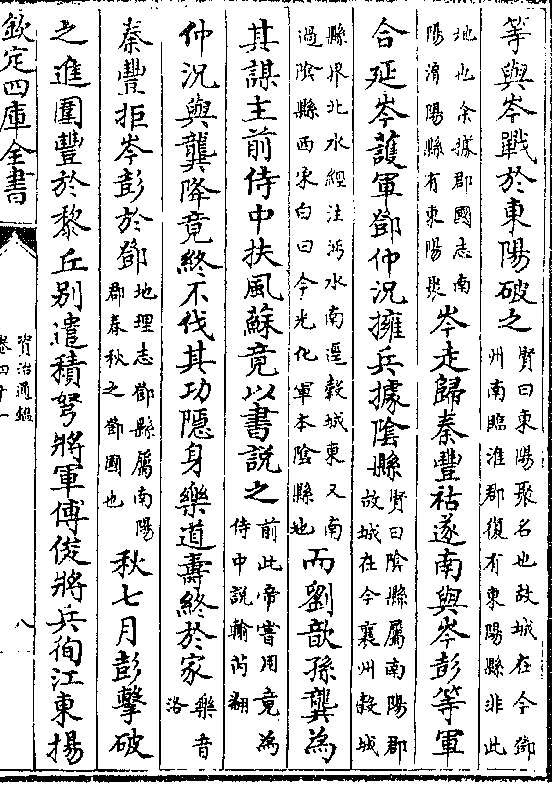 等與岑戰於東陽破之賢曰東陽聚名也故城在今鄧州南臨淮郡復有東陽縣非此
地也余據郡國志南陽淯陽縣有東陽聚岑走歸秦豐祜遂南與岑彭等軍
合延岑護軍鄧仲況擁兵據陰縣賢曰陰縣屬南陽郡故城在今襄州穀城
縣界北水經注沔水南逕穀城東又南過陰縣西宋白曰今光化軍本陰縣地而劉歆孫龔為
其謀主前侍中扶風蘇竟以書説之前此帝嘗用竟為侍中説輸芮翻
仲況與龔降竟終不伐其功隱身樂道壽終於家樂音洛
秦豐拒岑彭於鄧地理志鄧縣屬南陽郡春秋之鄧國也秋七月彭擊破
之進圍豐於黎丘别遣積弩將軍傅俊將兵徇江東揚
欽定四庫全書
資治通鑑
卷四十一
八